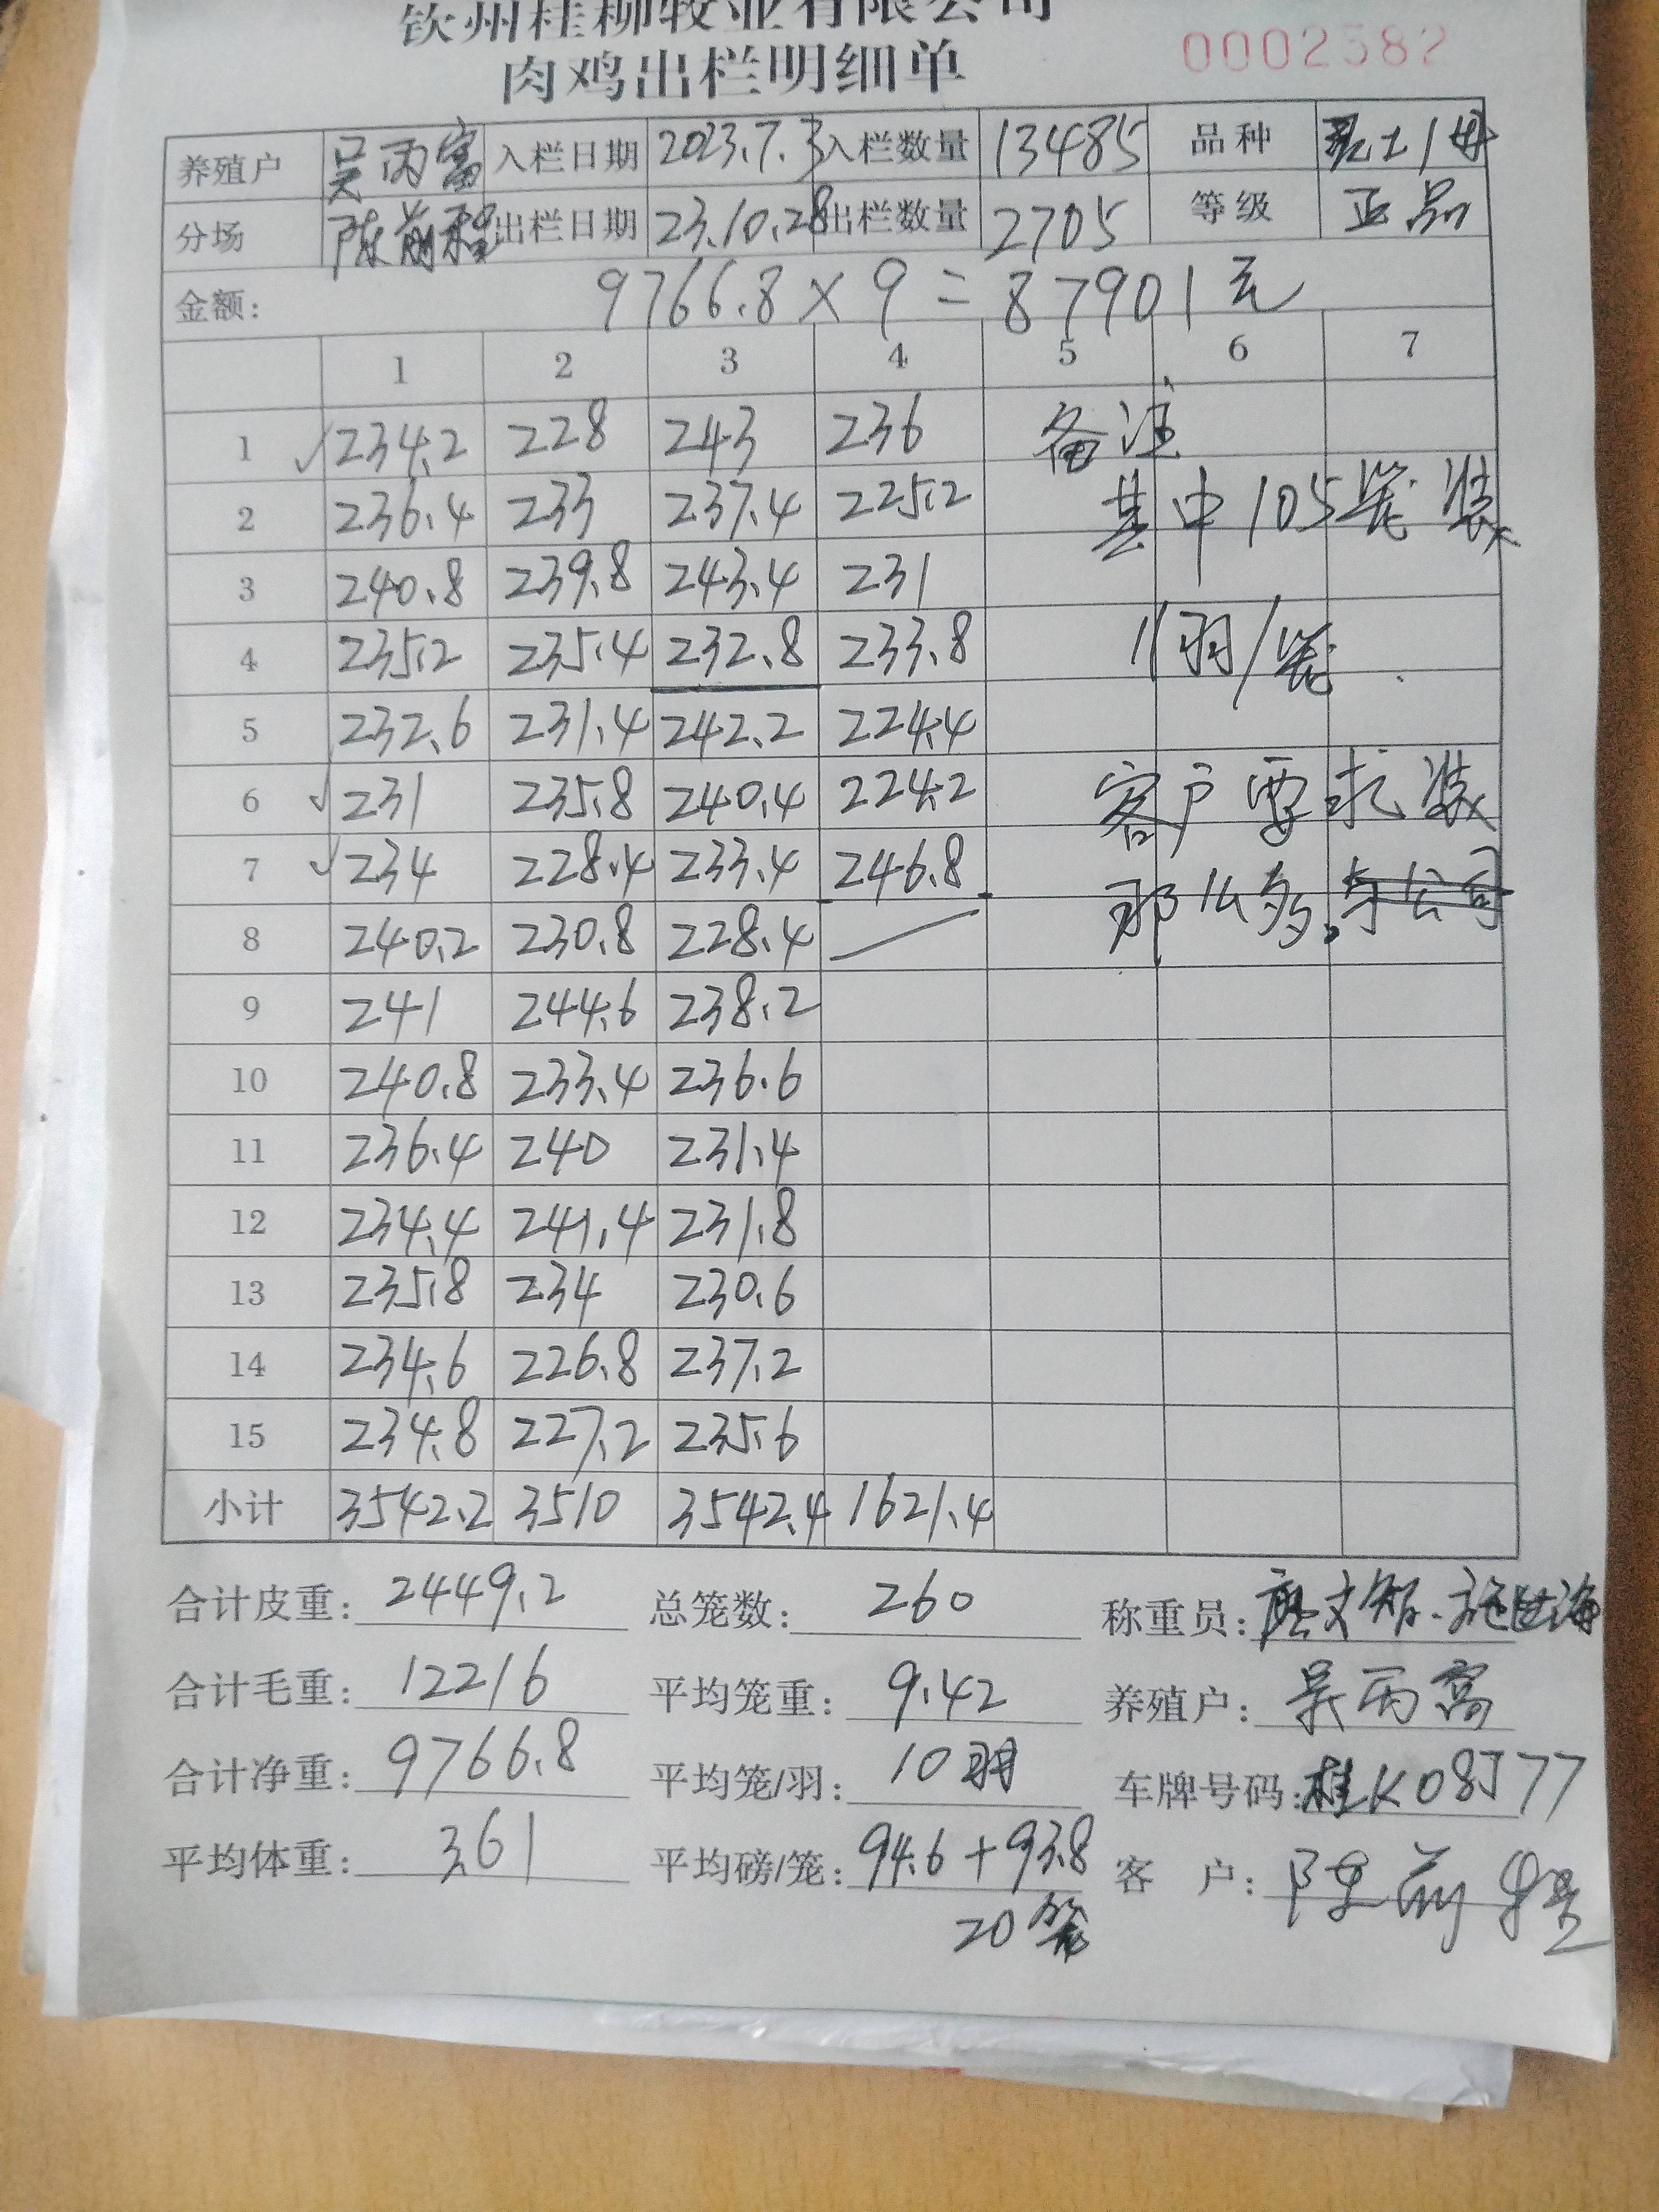 钦州桂柳牧业有限公司
肉鸡出栏明细单
0002582
养殖户 吴丙富 入栏日期 2023.7.3 入栏数量 13485 品种 土1母
分场 陈前程 出栏日期 23.10.28 出栏数量 2705 等级 正品
金额: 9766.8×9=87901元
1 2 3 4 5 6 7
1 √234.2 228 243 236 备注
2 236.4 233 237.4 225.2 其中105笼装
3 240.8 239.8 243.4 231
4 235.2 235.4 232.8 233.8 11羽/笼.
5 232.6 231.4 242.2 224.4
6 √231 235.8 240.4 224.2 客户要求装
7 √234 228.4 233.4 246.8 那么多。与公司
8 240.2 230.8 228.4
9 241 244.6 238.2
10 240.8 233.4 236.6
11 236.4 240 231.4
12 234.4 241.4 231.8
13 235.8 234 230.6
14 234.6 226.8 237.2
15 234.8 227.2 235.6
小计 3542.2 3510 3542.4 1621.4
合计皮重: 2449.2 总笼数: 260 称重员:
合计毛重: 12216 平均笼重: 9.42 养殖户: 吴丙富
合计净重: 9766.8 平均笼/羽: 10羽 车牌号码: 桂K08J77
平均体重: 3.61 平均磅/笼: 94.6+93.8 客 户: 陈前程
20笼